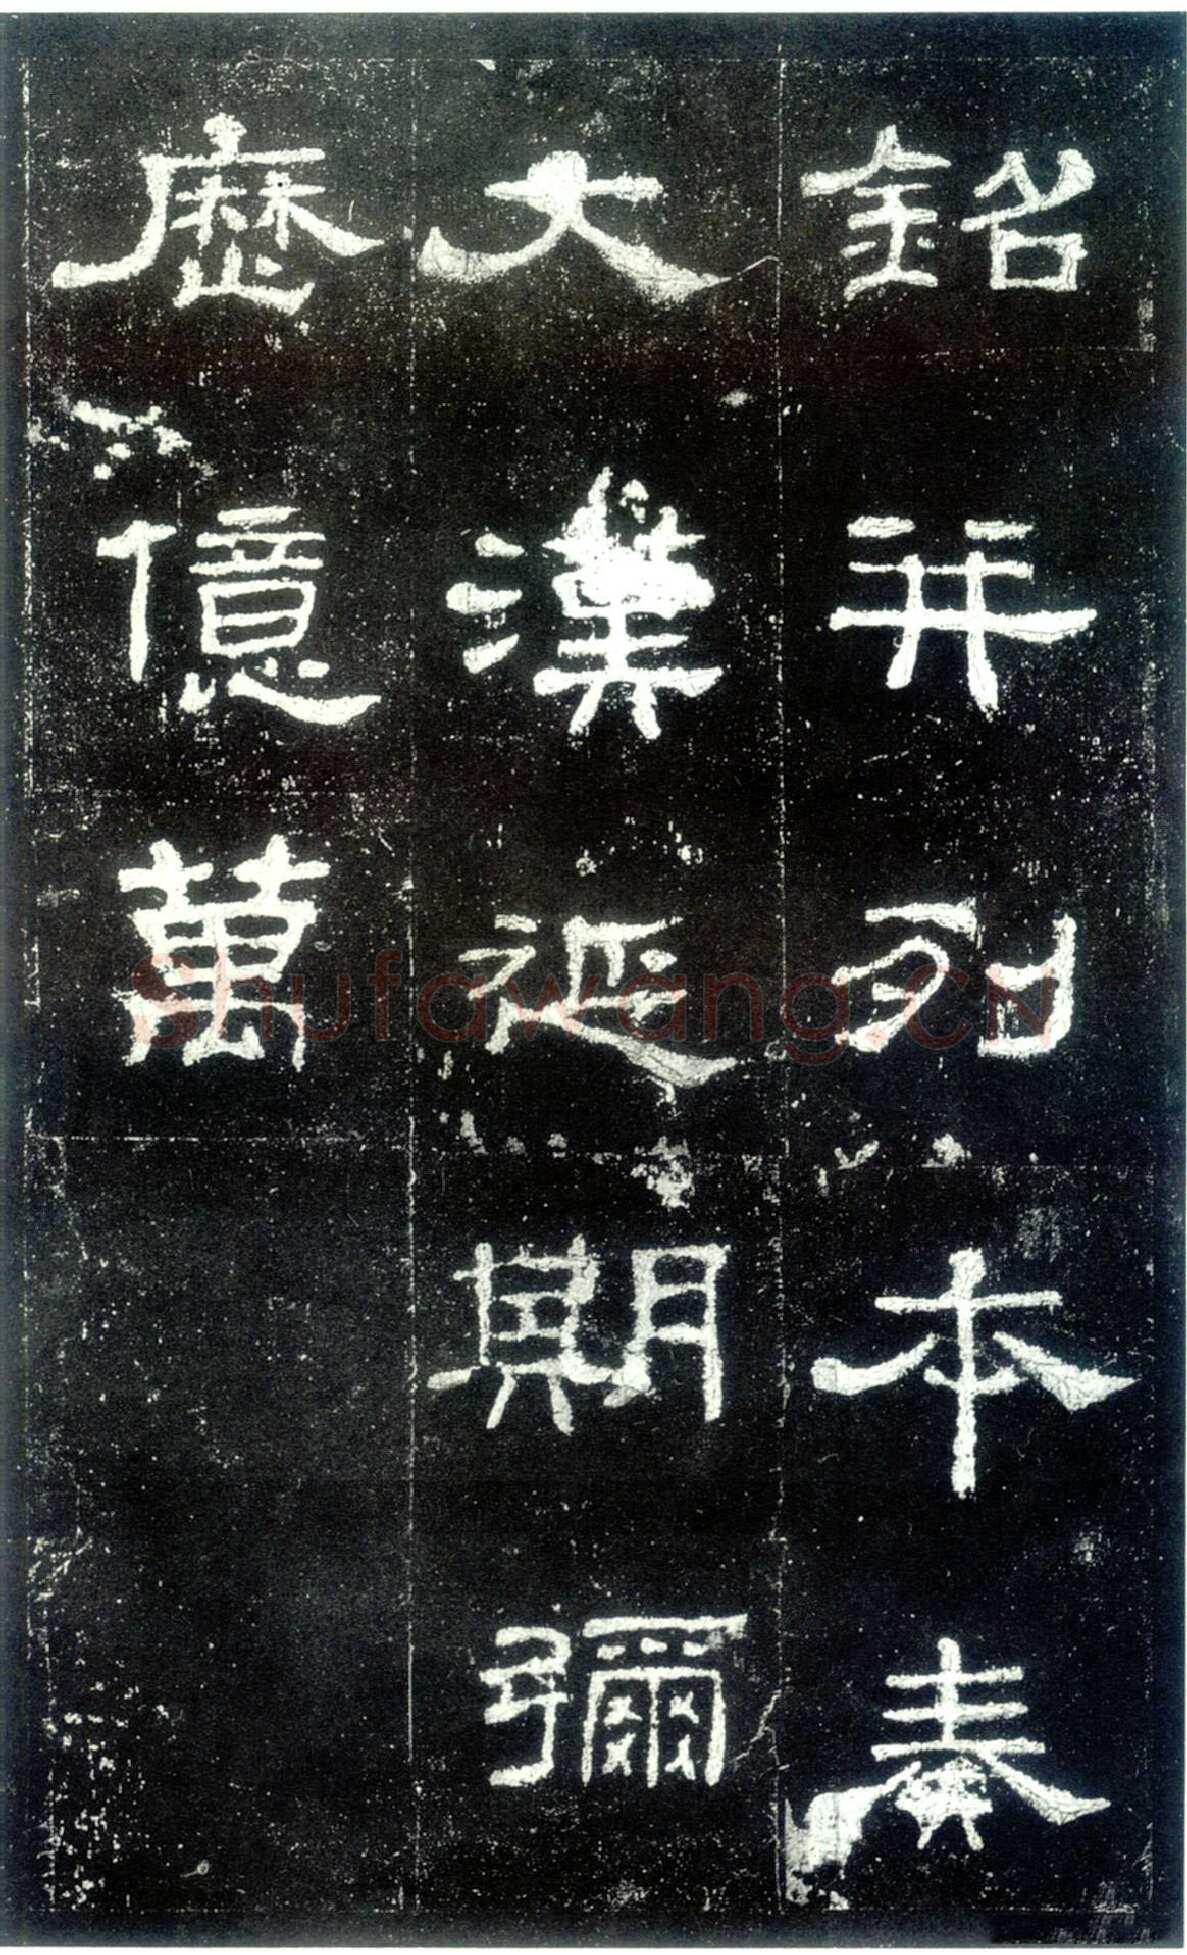 銘并列本奏
大漢延期彌
歷億萬
Shufawang.CN